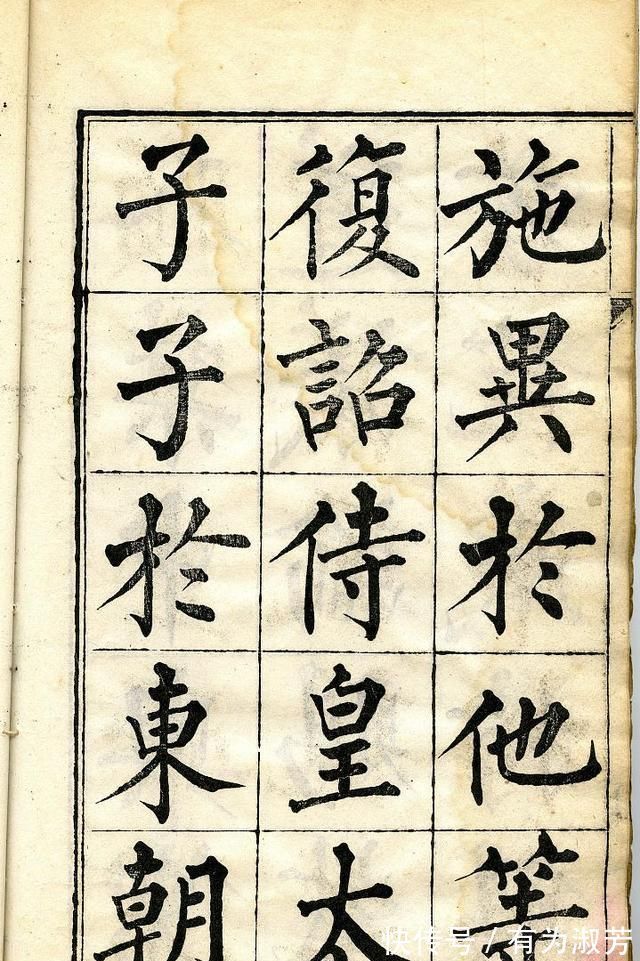 施異於他等
復詔侍皇太
子子於東朝
快传号 / 有为淑芳